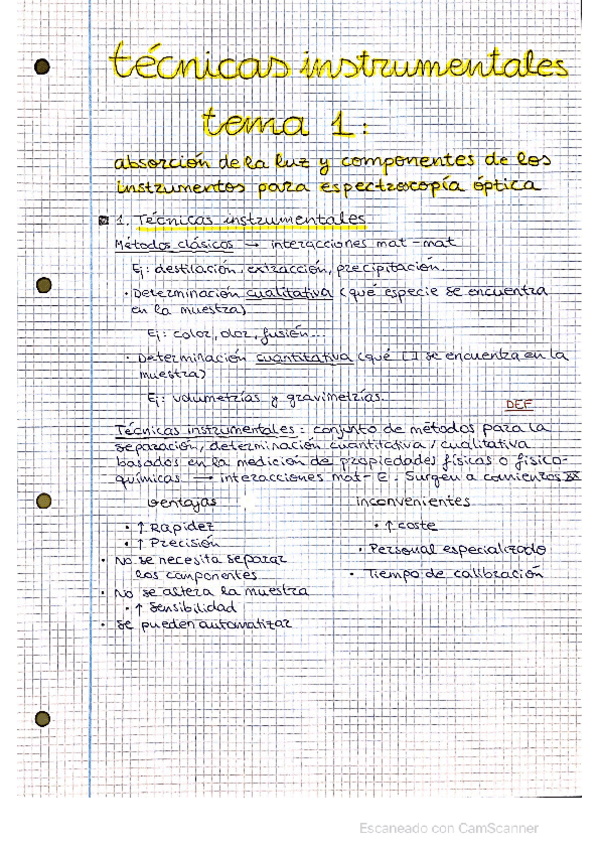 técnicas instrumentales
tema 1:
absorción de la luz y componentes de los
instrumentos para espectroscopía óptica
1. Técnicas instrumentales
Métodos clásicos → interacciones mat-mat
Ej: destilación, extracción, precipitación.
· Determinación cualitativa (qué especie se encuentra
en la muestra)
Ej: color, olor, fusión...
· Determinación cuantitativa (qué [] se encuentra en la
muestra)
Ej: volumetrías y gravimetrías.
DEF
Técnicas instrumentales: conjunto de métodos para la
separación, determinación cuantitativa / cualitativa
basados en la medición de propiedades físicas o físico-
químicas → interacciones mat-E. Surgen a comienzos XX
ventajas
· ↑ Rapidez
· ↑ Precisión
· No se necesita separar
los componentes
· No se altera la muestra
· ↑ Sensibilidad
· Se pueden automatizar
inconvenientes
· ↑ coste
· Personal especializado
· Tiempo de calibración
Escaneado con CamScanner